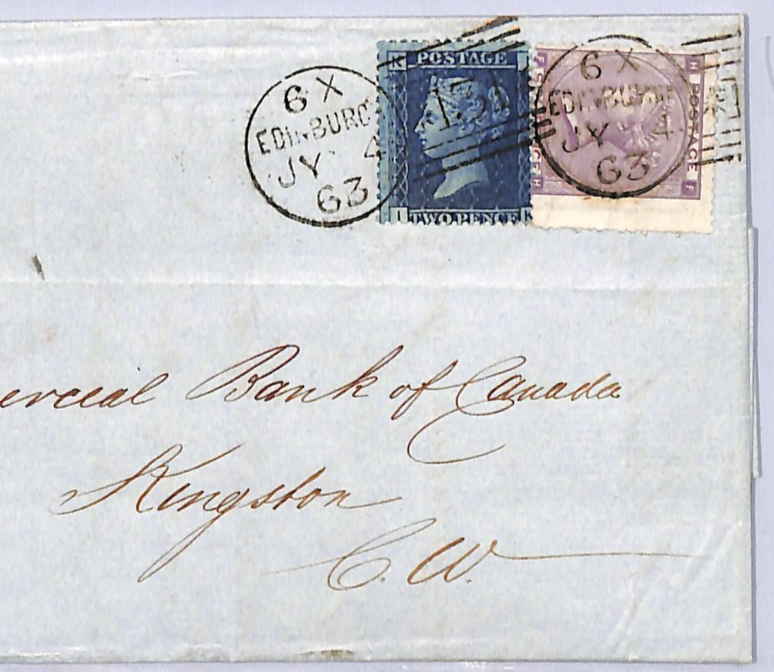 6 X
EDINBURGH
JY 4
63
K POSTAGE I
131
I TWO PENCE K
6 X
EDINBURGH
JY 4
63
H POSTAGE F
ercial Bank of Canada
Kingston
C. W.